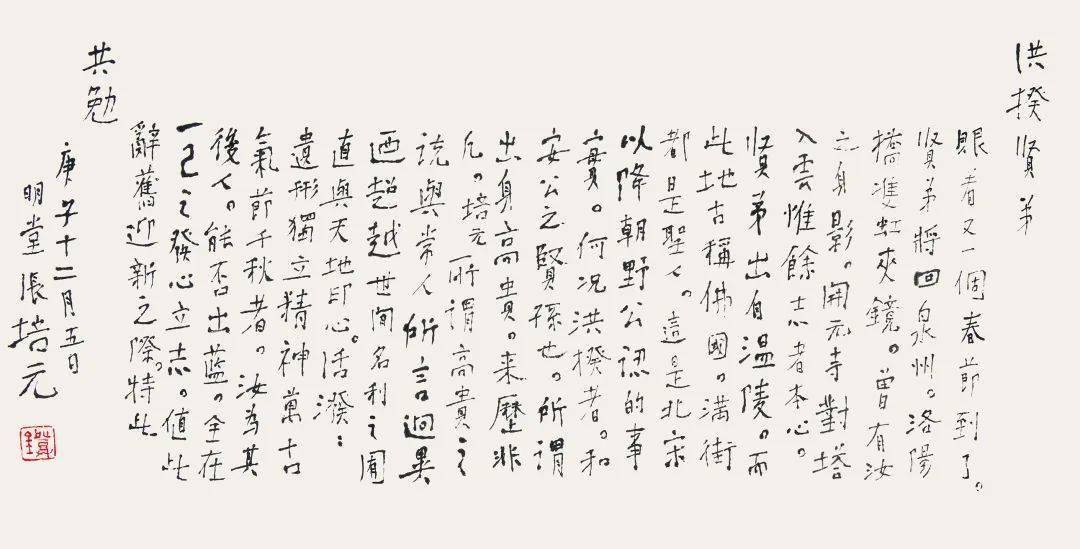 洪揆賢弟
眼看又一個春節到了。
賢弟將回泉州。洛陽
橋雙虹夾鏡。曾有汝
之身影。開元寺對塔
入雲惟餘志者本心。
賢弟出自溫陵。而
此地古稱佛國。滿街
都是聖人。這是北宋
以降朝野公認的事
實。何況洪揆者。和
安公之賢孫也。所謂
出身高貴。来歷非
凡。培元所謂高貴之
説與常人所言迥異
迺超越世間名利之囿
直與天地印心。活潑：
遺形獨立精神萬古
氣節千秋者。汝為其
後人。能否出藍。全在
一己之發心立志。值此
辭舊迎新之際。特此
共勉
庚子十二月五日
明堂張培元